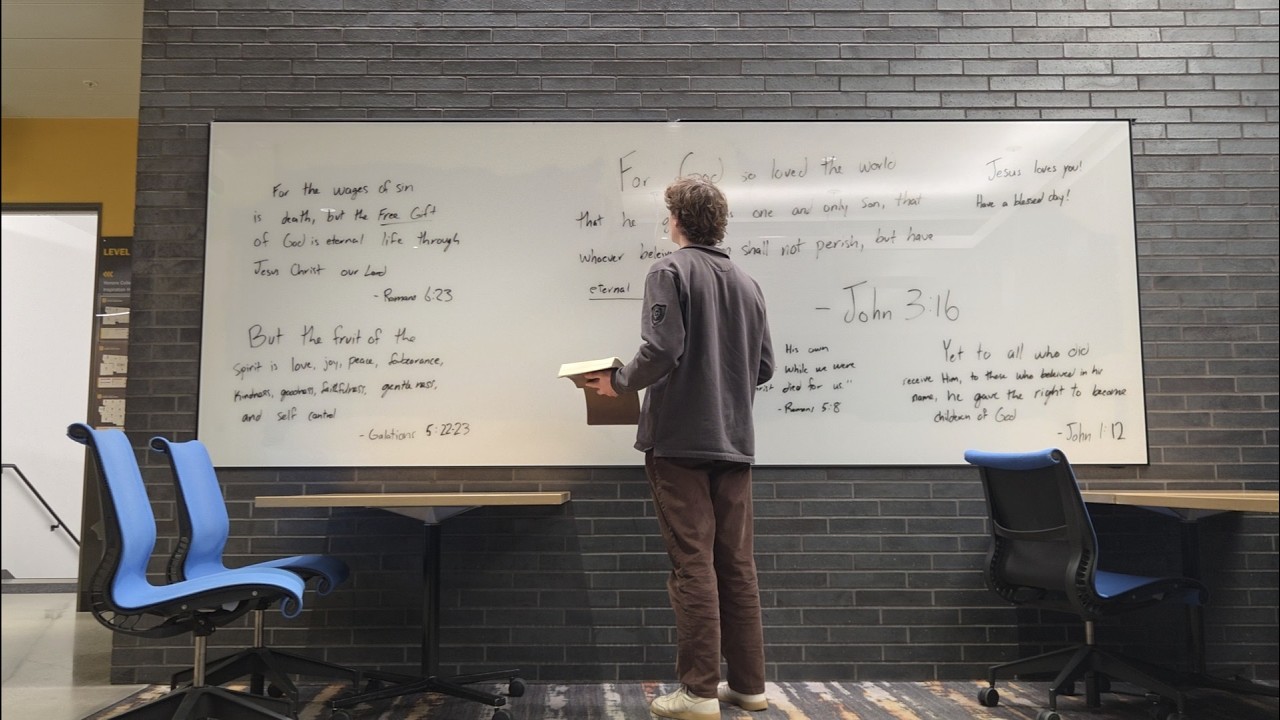 For the wages of sin
is death, but the Free Gift
of God is eternal life through
Jesus Christ our Lord
- Romans 6:23
But the fruit of the
spirit is love, joy, peace,
kindness, goodness, faithfulness, gentleness,
and self control
- Galatians 5:22-23
For God so loved the world
that he one and only son, that
whoever shall not perish, but have
eternal
- John 3:16
His own
while we were
died for us."
- Romans 5:8
Jesus loves you!
Have a blessed day!
Yet to all who did
receive Him, to those who beleived in his
name, he gave the right to become
children of God
- John 1:12
LEVEL